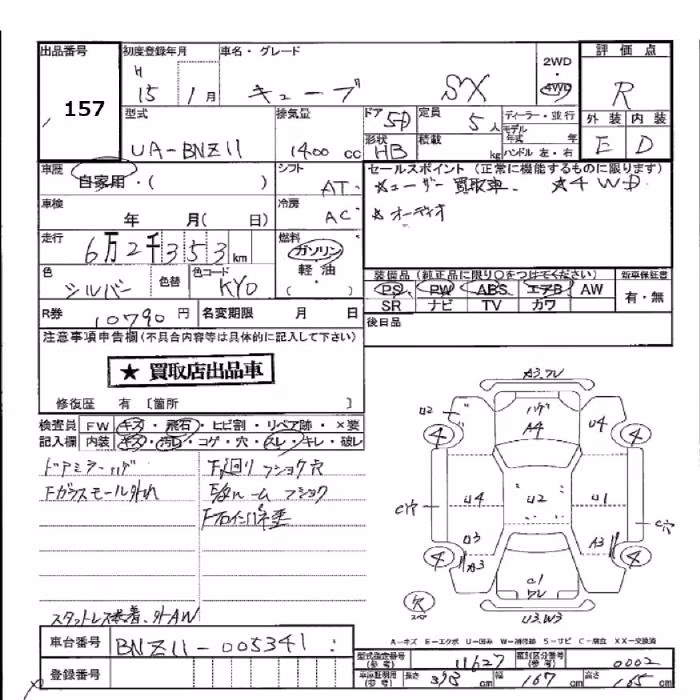 出品番号 初度登録年月 車名・グレード 2WD 評価点
157 H 15 1月 キューブ SX ・4WD R
型式 排気量 ドア 5D 定員 5人 ディーラー・並行 外装 内装
UA-BNZ11 1400cc 形状 HB 積載 kg モデル年式 年 ハンドル 左・右 E D
車歴 自家用・( ) シフト AT セールスポイント (正常に機能するものに限ります)
★ユーザー買取車. ★4WD
車検 年 月( 日) 冷房 AC ★オーディオ
走行 6万2千353km 燃料 ガソリン・軽油・( )
色 シルバー 色替 色コード KY0
装備品 (純正品に限り○をつけてください) 新車保証書
PS PW ABS エアB AW 有・無
SR ナビ TV カワ
R券 10790円 名変期限 月 日 後日品
注意事項申告欄(不具合内容等は具体的に記入して下さい)
★ 買取店出品車
修復歴 有 〔箇所 〕
検査員 FW キズ・飛石・ヒビ割・リペア跡・×要
記入欄 内装 キズ・汚れ・コゲ・穴・スレ・キレ・破レ
ドアミラーハゲ
Fガラスモール外れ
スタットレス装着、外AW
A3.ワレ
U2 ハゲ U4
4 A4 4
C穴 U4 U2 U1 C穴
U3 A3
4 A3 4
C1
ワレ
欠
U3.W3
A-キズ E-エクボ U-凹み W-補修跡 S-サビ C-腐食 XX-交換済
車台番号 BNZ11-005341
登録番号
型式指定番号(参考) 11627 類別区分番号(参考) 0002
車庫証明用(参考) 長さ 373cm 幅 167cm 高さ 165cm